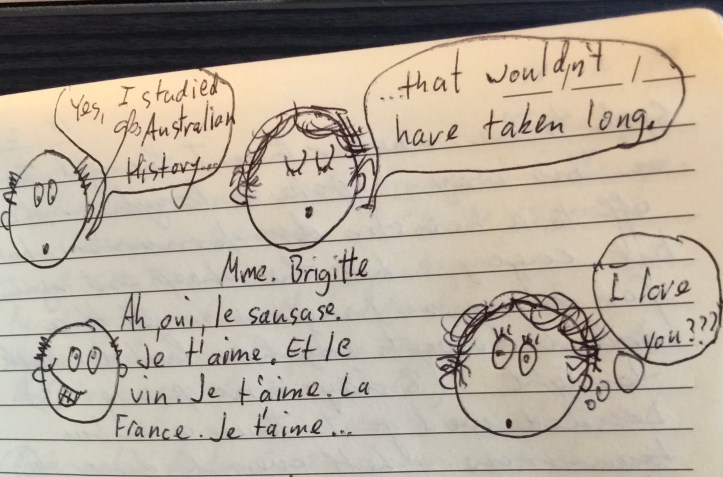 Yes, I studied
Australian
History...
...that wouldn't
have taken long.
Mme. Brigitte
Ah oui, le sausase.
Je t'aime. Et le
vin. Je t'aime. La
France. Je t'aime...
I love
you???